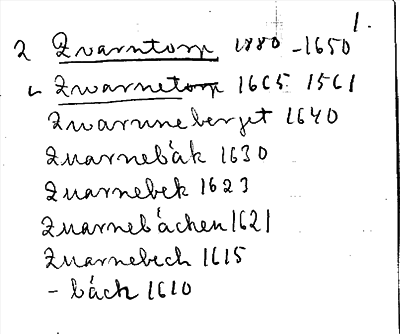 1.
2 Quarntorp 1880-1650
Quarnetorp 1665 1561
Quarnneberget 1640
Quarnebäk 1630
Quarnebek 1623
Quarnebächen 1621
Quarnebech 1615
- bäch 1610